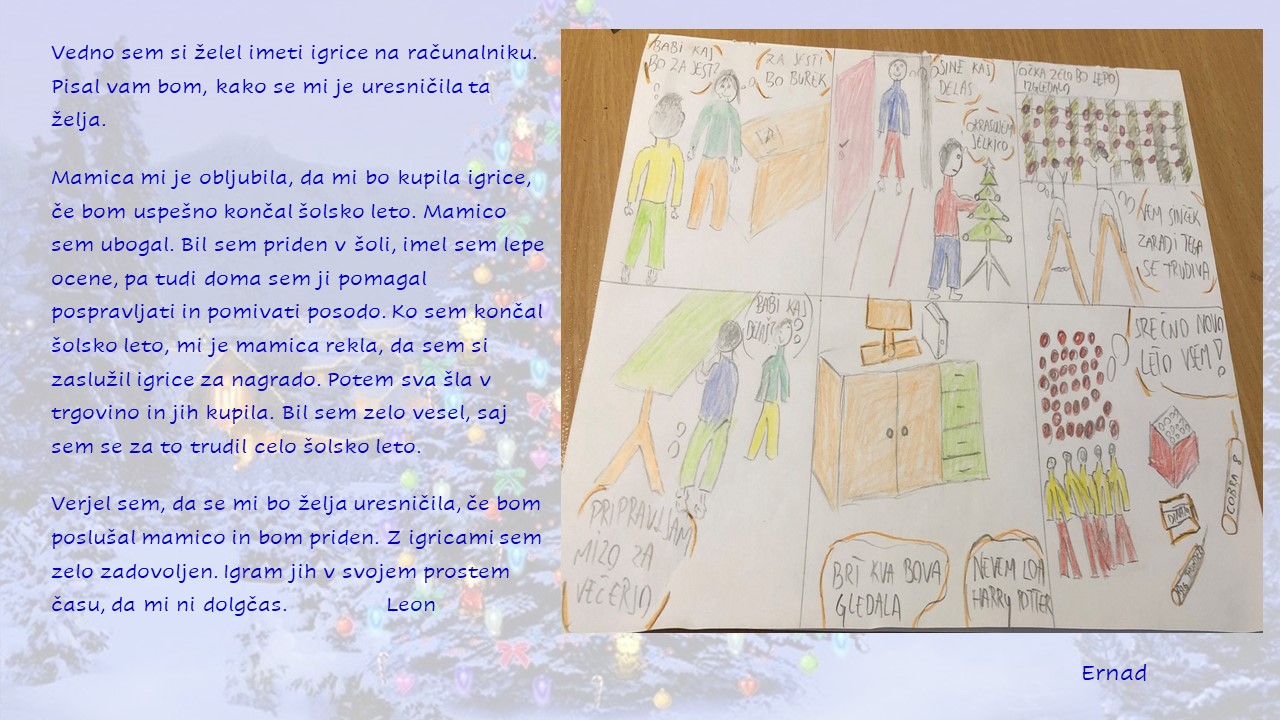 Vedno sem si želel imeti igrice na računalniku.
Pisal vam bom, kako se mi je uresničila ta
želja.
Mamica mi je obljubila, da mi bo kupila igrice,
če bom uspešno končal šolsko leto. Mamico
sem ubogal. Bil sem priden v šoli, imel sem lepe
ocene, pa tudi doma sem ji pomagal
pospravljati in pomivati posodo. Ko sem končal
šolsko leto, mi je mamica rekla, da sem si
zaslužil igrice za nagrado. Potem sva šla v
trgovino in jih kupila. Bil sem zelo vesel, saj
sem se za to trudil celo šolsko leto.
Verjel sem, da se mi bo želja uresničila, če bom
poslušal mamico in bom priden. Z igricami sem
zelo zadovoljen. Igram jih v svojem prostem
času, da mi ni dolgčas. Leon
BABI KAJ
BO ZA JEST?
ZA JESTI
BO BUREK
SINE KAJ
DELAŠ
OKRASUJEM
JELKICO
OČKA ZELO BO LEPO
IZGLEDALO
VEM SINČEK
ZARADI TEGA
SE TRUDIVA
BABI KAJ
DELAŠ?
PRIPRAVLJAM
MIZO ZA
VEČERJO
BRT KVA BOVA
GLEDALA
NEVEM LOH
HARRY POTTER
SREČNO NOVO
LETO VSEM!
COBRA 8
Ernad